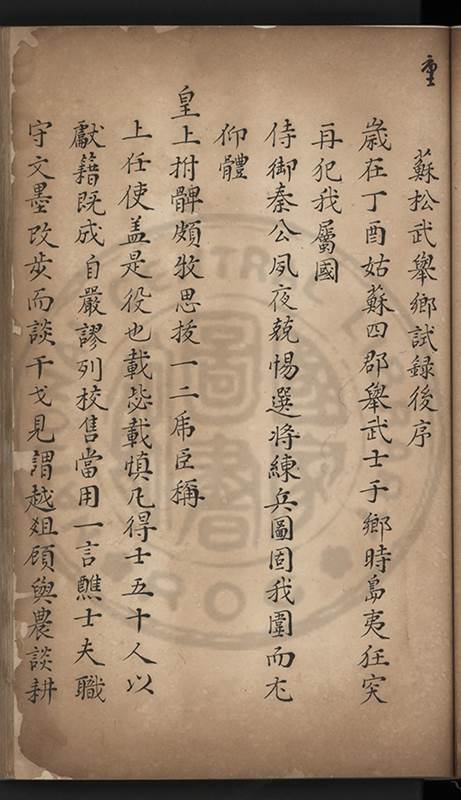 重
蘇松武舉鄉試録後序
歲在丁酉姑蘇四郡舉武士于鄉時島夷狂突
再犯我屬國
侍御秦公夙夜兢惕選將練兵圖固我圉而尤
仰體
皇上拊髀頗牧思拔一二虎臣稱
上任使盖是役也載毖載慎凡得士五十人以
獻籍既成自嚴謬列校售當用一言醮士夫職
守文墨改步而談干戈見謂越俎顧與農談耕